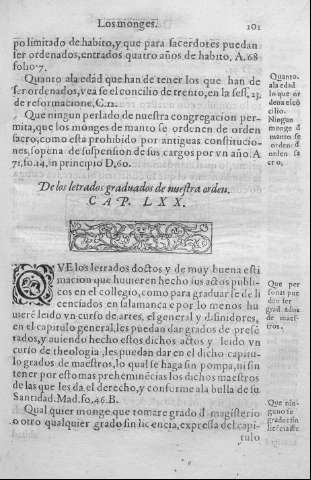 Los monges. 101
po limitado de habito, y que para sacerdotes puedan
ser ordenados, entrados quatro años de habito. A. 68
folio. 7.
Quanto ala edad que han de tener los que han de
ser ordenados, vea se el concilio de trento, en la sess. 23.
de reformacione, C. 12.
Que ningun perlado de nuestra congregacion per-
mita, que los mõnges de manto se ordenen de orden
sacro, como esta prohibido por antiguas constitucio-
nes, so pena de suspension de sus cargos por vn año. A
71, fo. 14. in principio D. 60.
Quanto
ala edad
lo que or
dena el cõ
cilio.
Ningun
monge d
manto se
ordene d
orden sa
cro,
De los letrados graduados de nuestra orden.
CAP. LXX.
QVE los letrados doctos y de muy buena esti
macion que huuieren hecho sus actos publi-
cos en el collegio, como para graduar se de li
cenciados en salamanca e por lo menos hu
uierẽ leido vn curso de artes, el general y difinidores,
en el capitulo general, les puedan dar grados de presẽ
tados, y auiendo hecho estos dichos actos y leido vn
curso de theologia, les puedan dar en el dicho capitu-
lo grados de maestros, lo qual se haga sin pompa, ni sin
tener por esto mas preheminẽcias los dichos maestros
de las que les da el derecho, y conforme a la bulla de su
Santidad. Mad. fo, 46. B.
Qual quier monge que tomare grado d magisterio
o otro qualquier grado sin licencia, expressa del capi-
tulo
Que per
sonas pue
den ser
graduados
de maes-
tros.
Que nin-
guno se
gradue sin
licẽcia &c